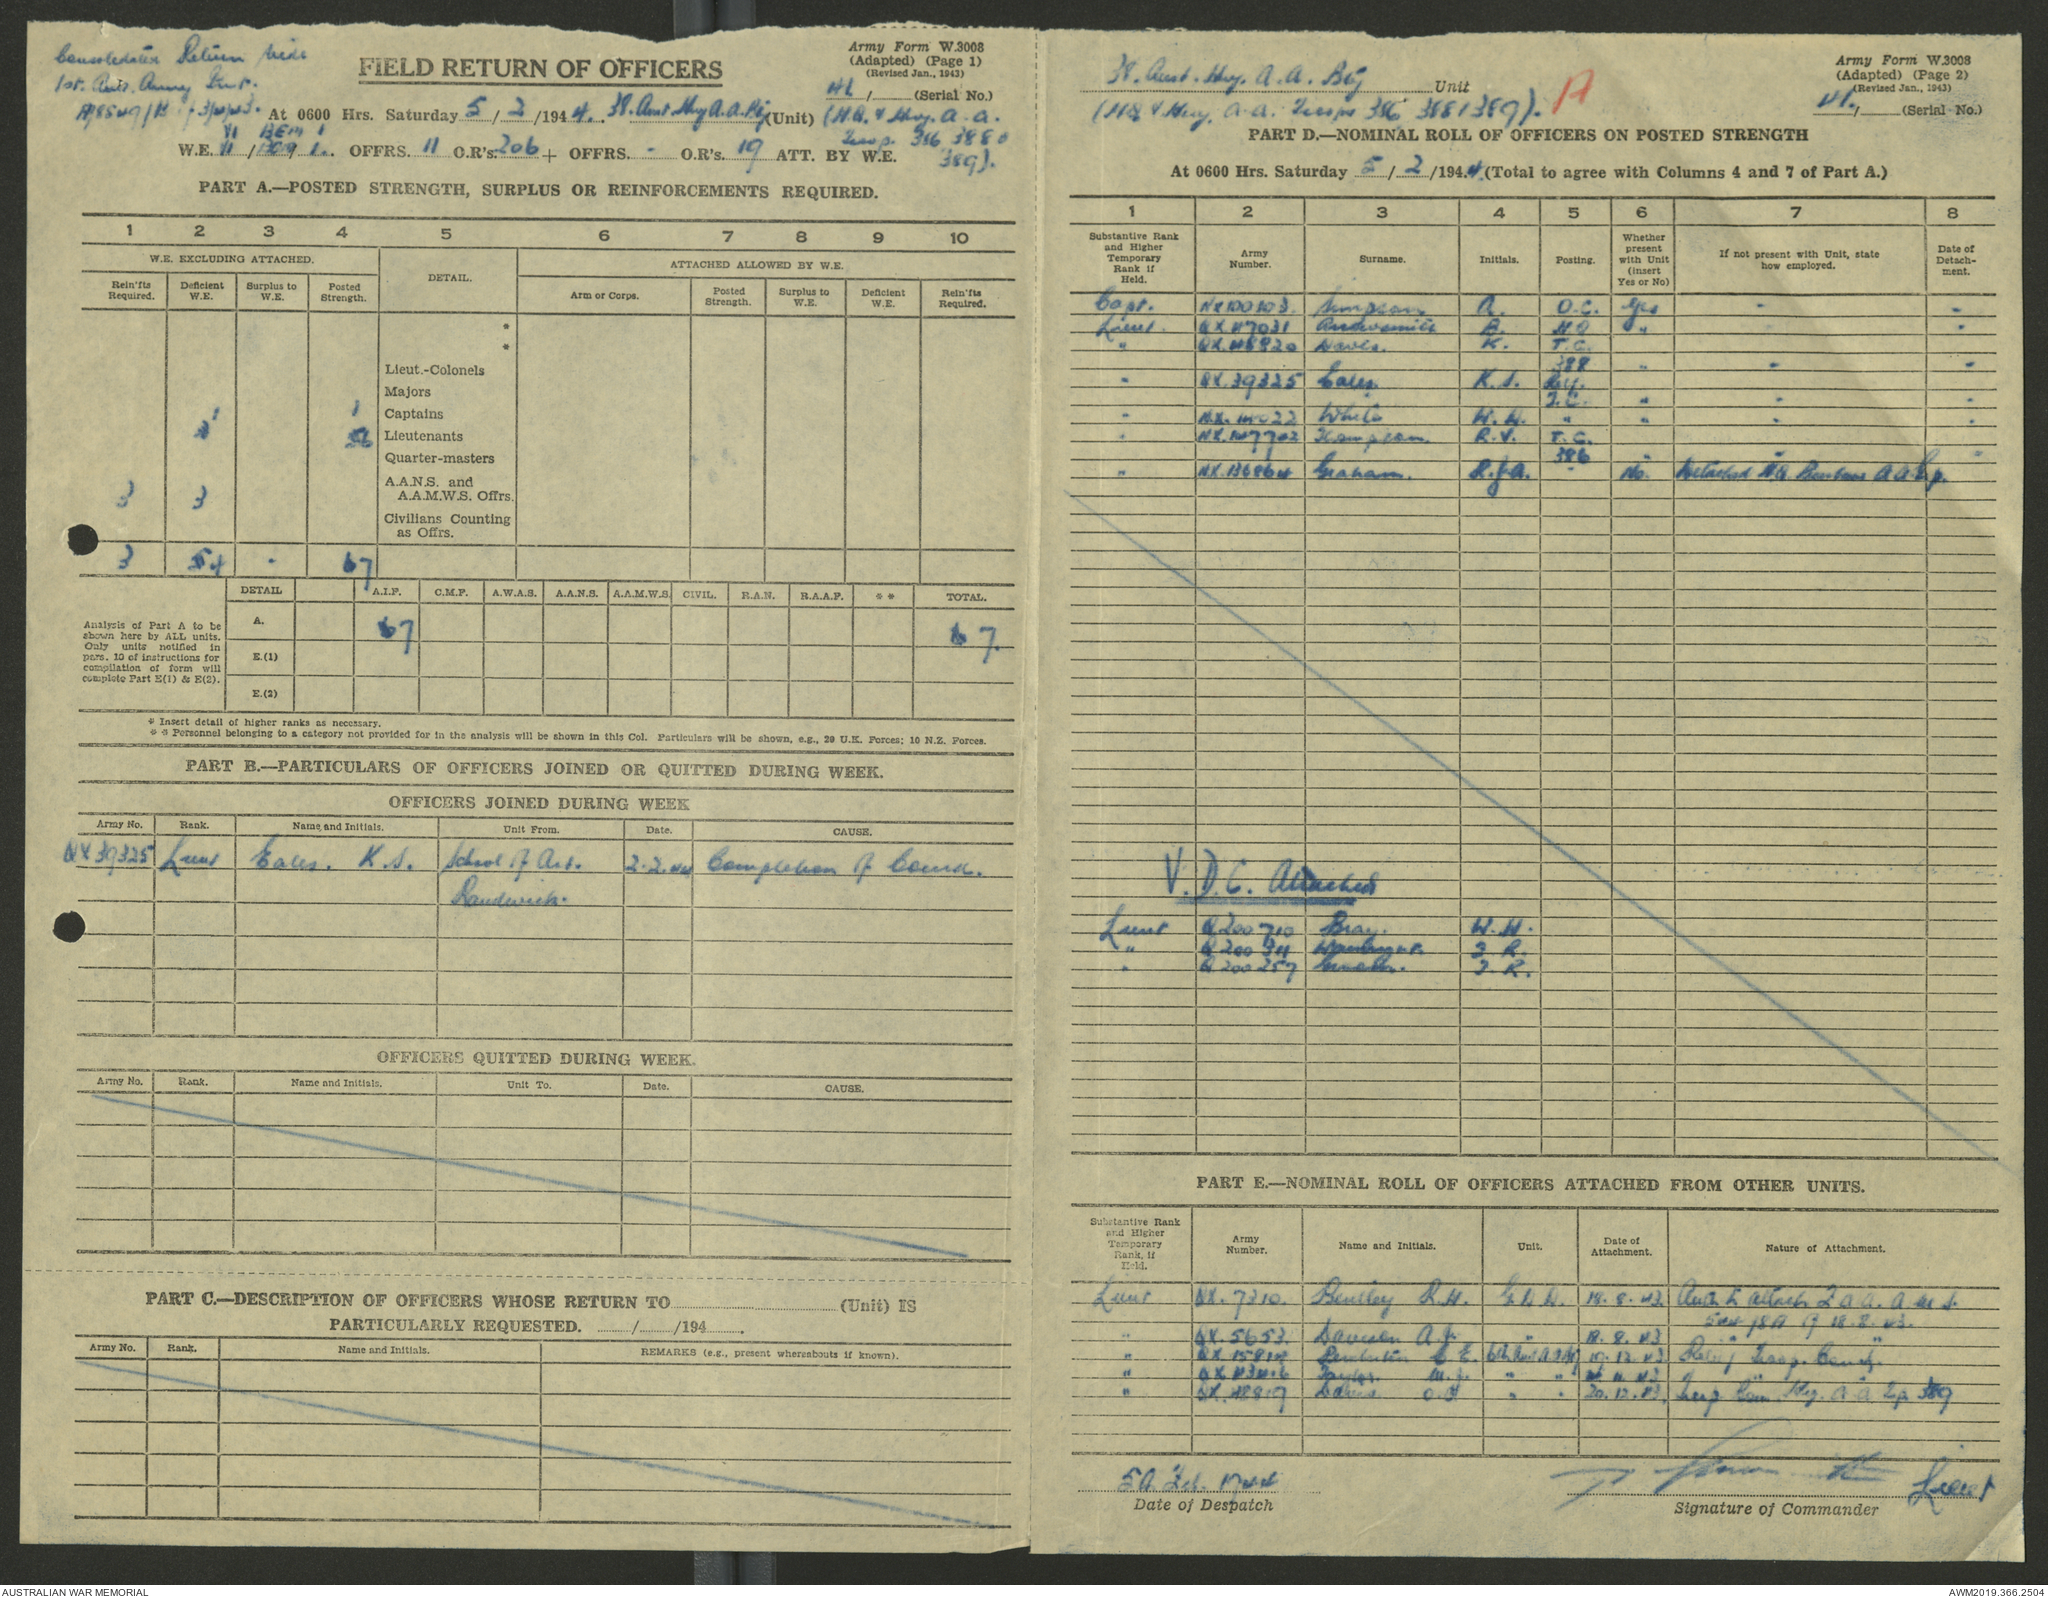 Consolidated Return vide
1st. Aust. Army Inst.
FIELD RETURN OF OFFICERS
Army Form W.3008
(Adapted) (Page 1)
(Revised Jan., 1943)
41 / (Serial No.)
At 0600 Hrs. Saturday 5 / 2 /1944. 38. Aust Hvy A.A. Bty (Unit) (H.Q. & Hvy. A.A.
Troop. 386 388 &
389).
W.E. OFFRS. 11 O.R's. 206 + OFFRS. - O.R's. 19 ATT. BY W.E.
PART A.—POSTED STRENGTH, SURPLUS OR REINFORCEMENTS REQUIRED.
1 2 3 4 5 6 7 8 9 10
W.E. EXCLUDING ATTACHED.
DETAIL.
ATTACHED ALLOWED BY W.E.
Rein'fts Required.
Deficient W.E.
Surplus to W.E.
Posted Strength.
Arm or Corps.
Posted Strength.
Surplus to W.E.
Deficient W.E.
Rein'fts Required.
*
*
Lieut.-Colonels
Majors
1 1 Captains
6 Lieutenants
Quarter-masters
3 3 A.A.N.S. and
A.A.M.W.S. Offrs.
Civilians Counting
as Offrs.
3 4 - 7
DETAIL A.I.F. C.M.F. A.W.A.S. A.A.N.S. A.A.M.W.S. CIVIL. R.A.N. R.A.A.F. * * TOTAL.
Analysis of Part A to be
shown here by ALL units.
Only units notified in
para. 10 of instructions for
compilation of form will
complete Part E(1) & E(2).
A. 7 7.
E.(1)
E.(2)
* Insert detail of higher ranks as necessary.
* * Personnel belonging to a category not provided for in the analysis will be shown in this Col. Particulars will be shown, e.g., 29 U.K. Forces; 10 N.Z. Forces.
PART B.—PARTICULARS OF OFFICERS JOINED OR QUITTED DURING WEEK.
OFFICERS JOINED DURING WEEK
Army No. Rank. Name and Initials. Unit From. Date. CAUSE.
QX39325 Lieut Eales. K.S. School of Art. 2.2.44 Completion of Course.
Randwick.
OFFICERS QUITTED DURING WEEK.
Army No. Rank. Name and Initials. Unit To. Date. CAUSE.
PART C.—DESCRIPTION OF OFFICERS WHOSE RETURN TO (Unit) IS
PARTICULARLY REQUESTED. / /194 .
Army No. Rank. Name and Initials. REMARKS (e.g., present whereabouts if known).
38. Aust. Hvy. A.A. Bty Unit
(H.Q & Hvy. A.A. Troops 386 388 & 389).
A
Army Form W.3008
(Adapted) (Page 2)
(Revised Jan., 1943)
41. / (Serial No.)
PART D.—NOMINAL ROLL OF OFFICERS ON POSTED STRENGTH
At 0600 Hrs. Saturday 5 / 2 /1944. (Total to agree with Columns 4 and 7 of Part A.)
1 2 3 4 5 6 7 8
Substantive Rank and Higher Temporary Rank if Held.
Army Number.
Surname.
Initials.
Posting.
Whether present with Unit (insert Yes or No)
If not present with Unit, state how employed.
Date of Detachment.
Capt. NX100103. Simpson R. O.C. Yes - -
Lieut. QX.47031 B. " -
" QX.48820 Davis. K. T.C.
388 " - -
" QX.39325 Eales. K.S.
T.C. " - -
" White W.H. " " - -
" R.V. T.C.
386
" NX.136864 Graham. R.J.A. - No. Detached H.Q. Brisbane A A Gp.
V.D.C. Attached
Lieut Q.200710 Bray. W.H.
" J R.
" Q.200257 J.R.
PART E.—NOMINAL ROLL OF OFFICERS ATTACHED FROM OTHER UNITS.
Substantive Rank and Higher Temporary Rank, if Held.
Army Number.
Name and Initials.
Unit.
Date of Attachment.
Nature of Attachment.
Lieut QX.7310. Bentley R.H. G.D.D. 18.8.43.
18.8.43.
" QX.5653. Davison A.J. " 18.8.43
" 10.12.43 Relief Troop. Comdr.
" Taylor. M.J. " "
" QX.48819 " " 20.12.43. 389
5th Feb. 1944
Date of Despatch
Lieut
Signature of Commander
AUSTRALIAN WAR MEMORIAL
AWM2019.366.2504